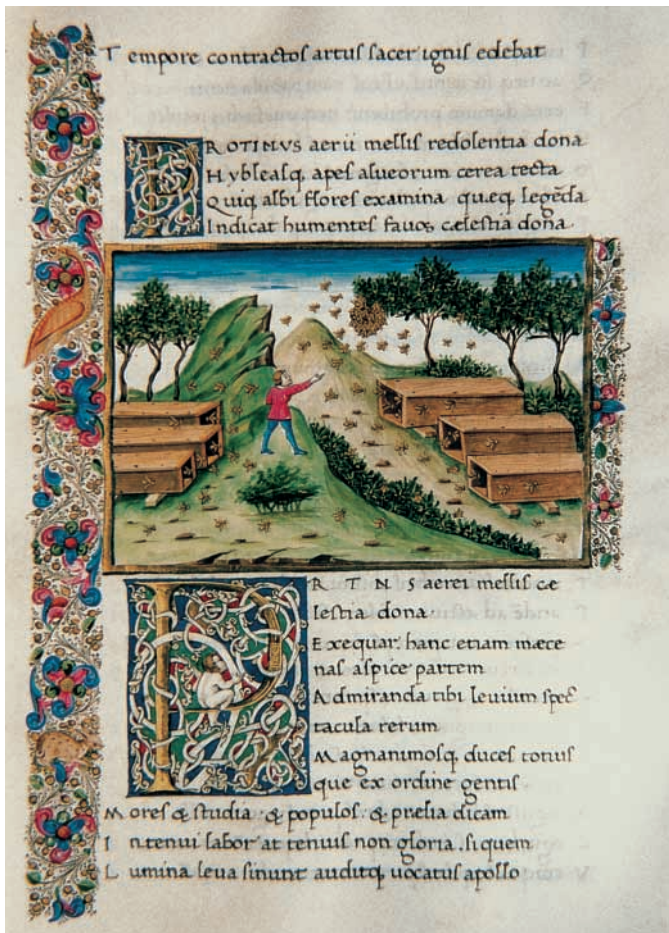 Tempore contractos artus sacer ignis edebat
PROTINVS aerii mellis redolentia dona
Hybleasq apes alueorum cerea tecta
Quiq albi flores examina quæq legēda
Indicat humentes fauos cælestia dona.
PROTINS aerei mellis cæ
lestia dona.
Exequar. hanc etiam mæce
nas aspice partem
Admiranda tibi levium spec
tacula rerum
Magnanimosq duces totius
que ex ordine gentis
Mores & studia. & populos. & prelia dicam
In tenui labor at tenuis non gloria. si quem
Lumina leva sinunt auditq uocatus apollo